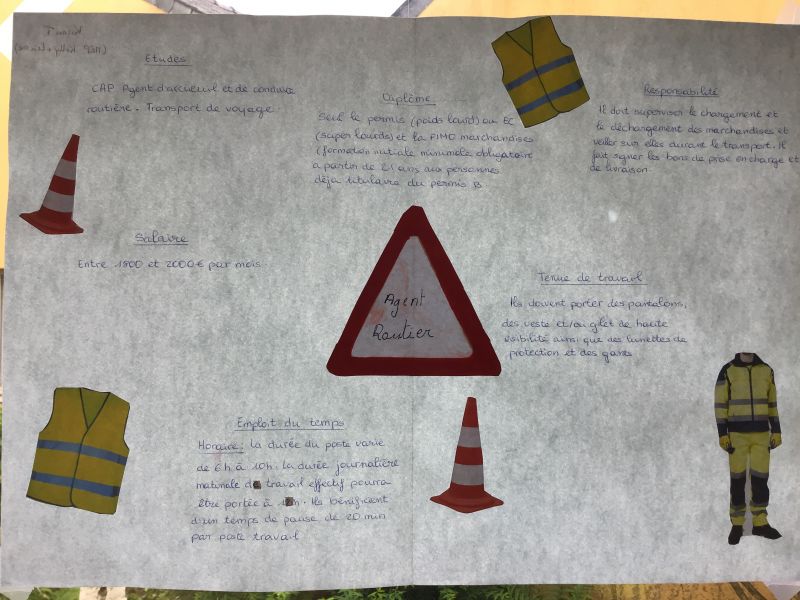 Etudes
CAP Agent d'acceuil et de conduite
routière. Transport de voyage.
Diplôme
Seul le permis (poids lourd) ou EC
(super lourds) et la FIMO marchandises
(formation initiale minimale obligatoire
a partir de 21 ans aux personnes
déja titulaire du permis B
Responsabilité
Il doit superviser le chargement et
le déchargement des marchandises et
veiller sur elles durant le transport. Il
fait signer les bons de prise en charge et
de livraison.
Salaire
Entre 1800 et 2000€ par mois.
Agent
Routier
Tenue de travail
Ils doivent porter des pantalons,
des veste et/ou gilet de haute
visibilité ainsi que des lunettes de
protection et des gants
Emploit du temps
Horaire: la durée du poste varie
de 6h à 10h. la durée journalière
maximale de travail effectif pourra
être portée à h. Ils bénéficient
d'un temps de pause de 20 min
par poste travail